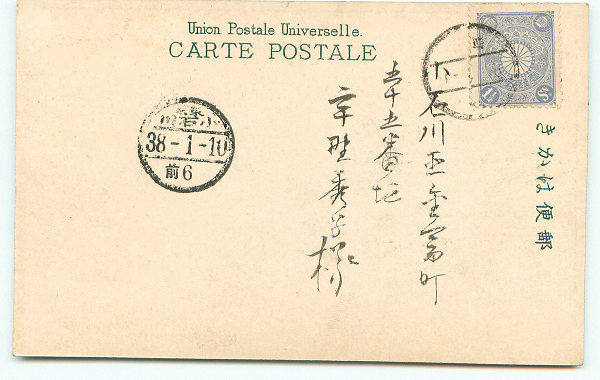 Union Postale Universelle.
CARTE POSTALE
きかは便郵
小石川区金富町
五十五番地
宇野秀子様
38-1-10
前6
1½ Sn